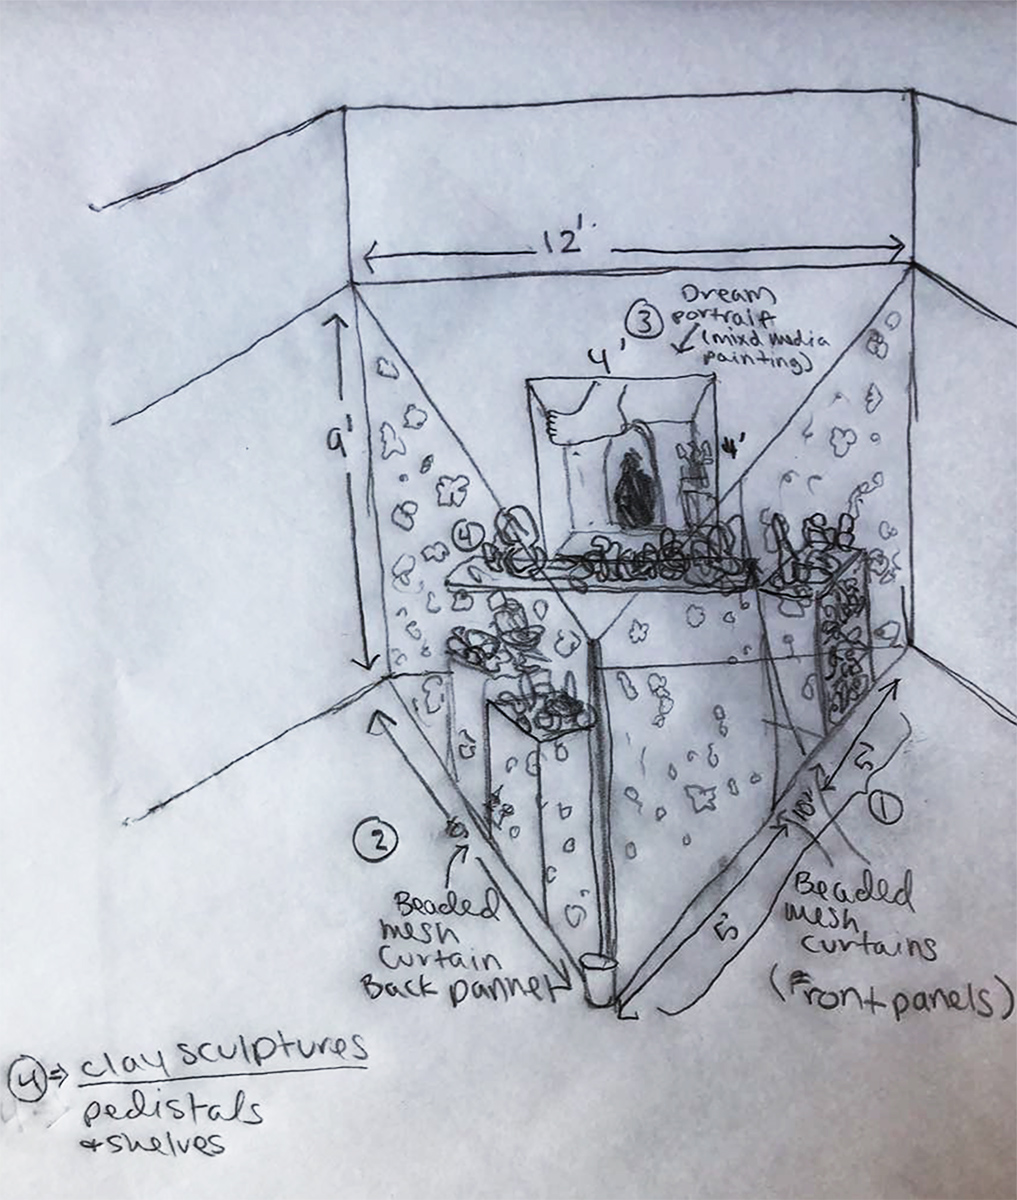 12'
③ Dream
portrait
(mixd media
painting)
4'
4'
9'
④
5'
10"
①
5'
②
Beaded
mesh
Curtain
Back pannel
Beaded
mesh
curtains
(Front panels)
④ ⇒ clay sculptures
pedistals
+ shelves